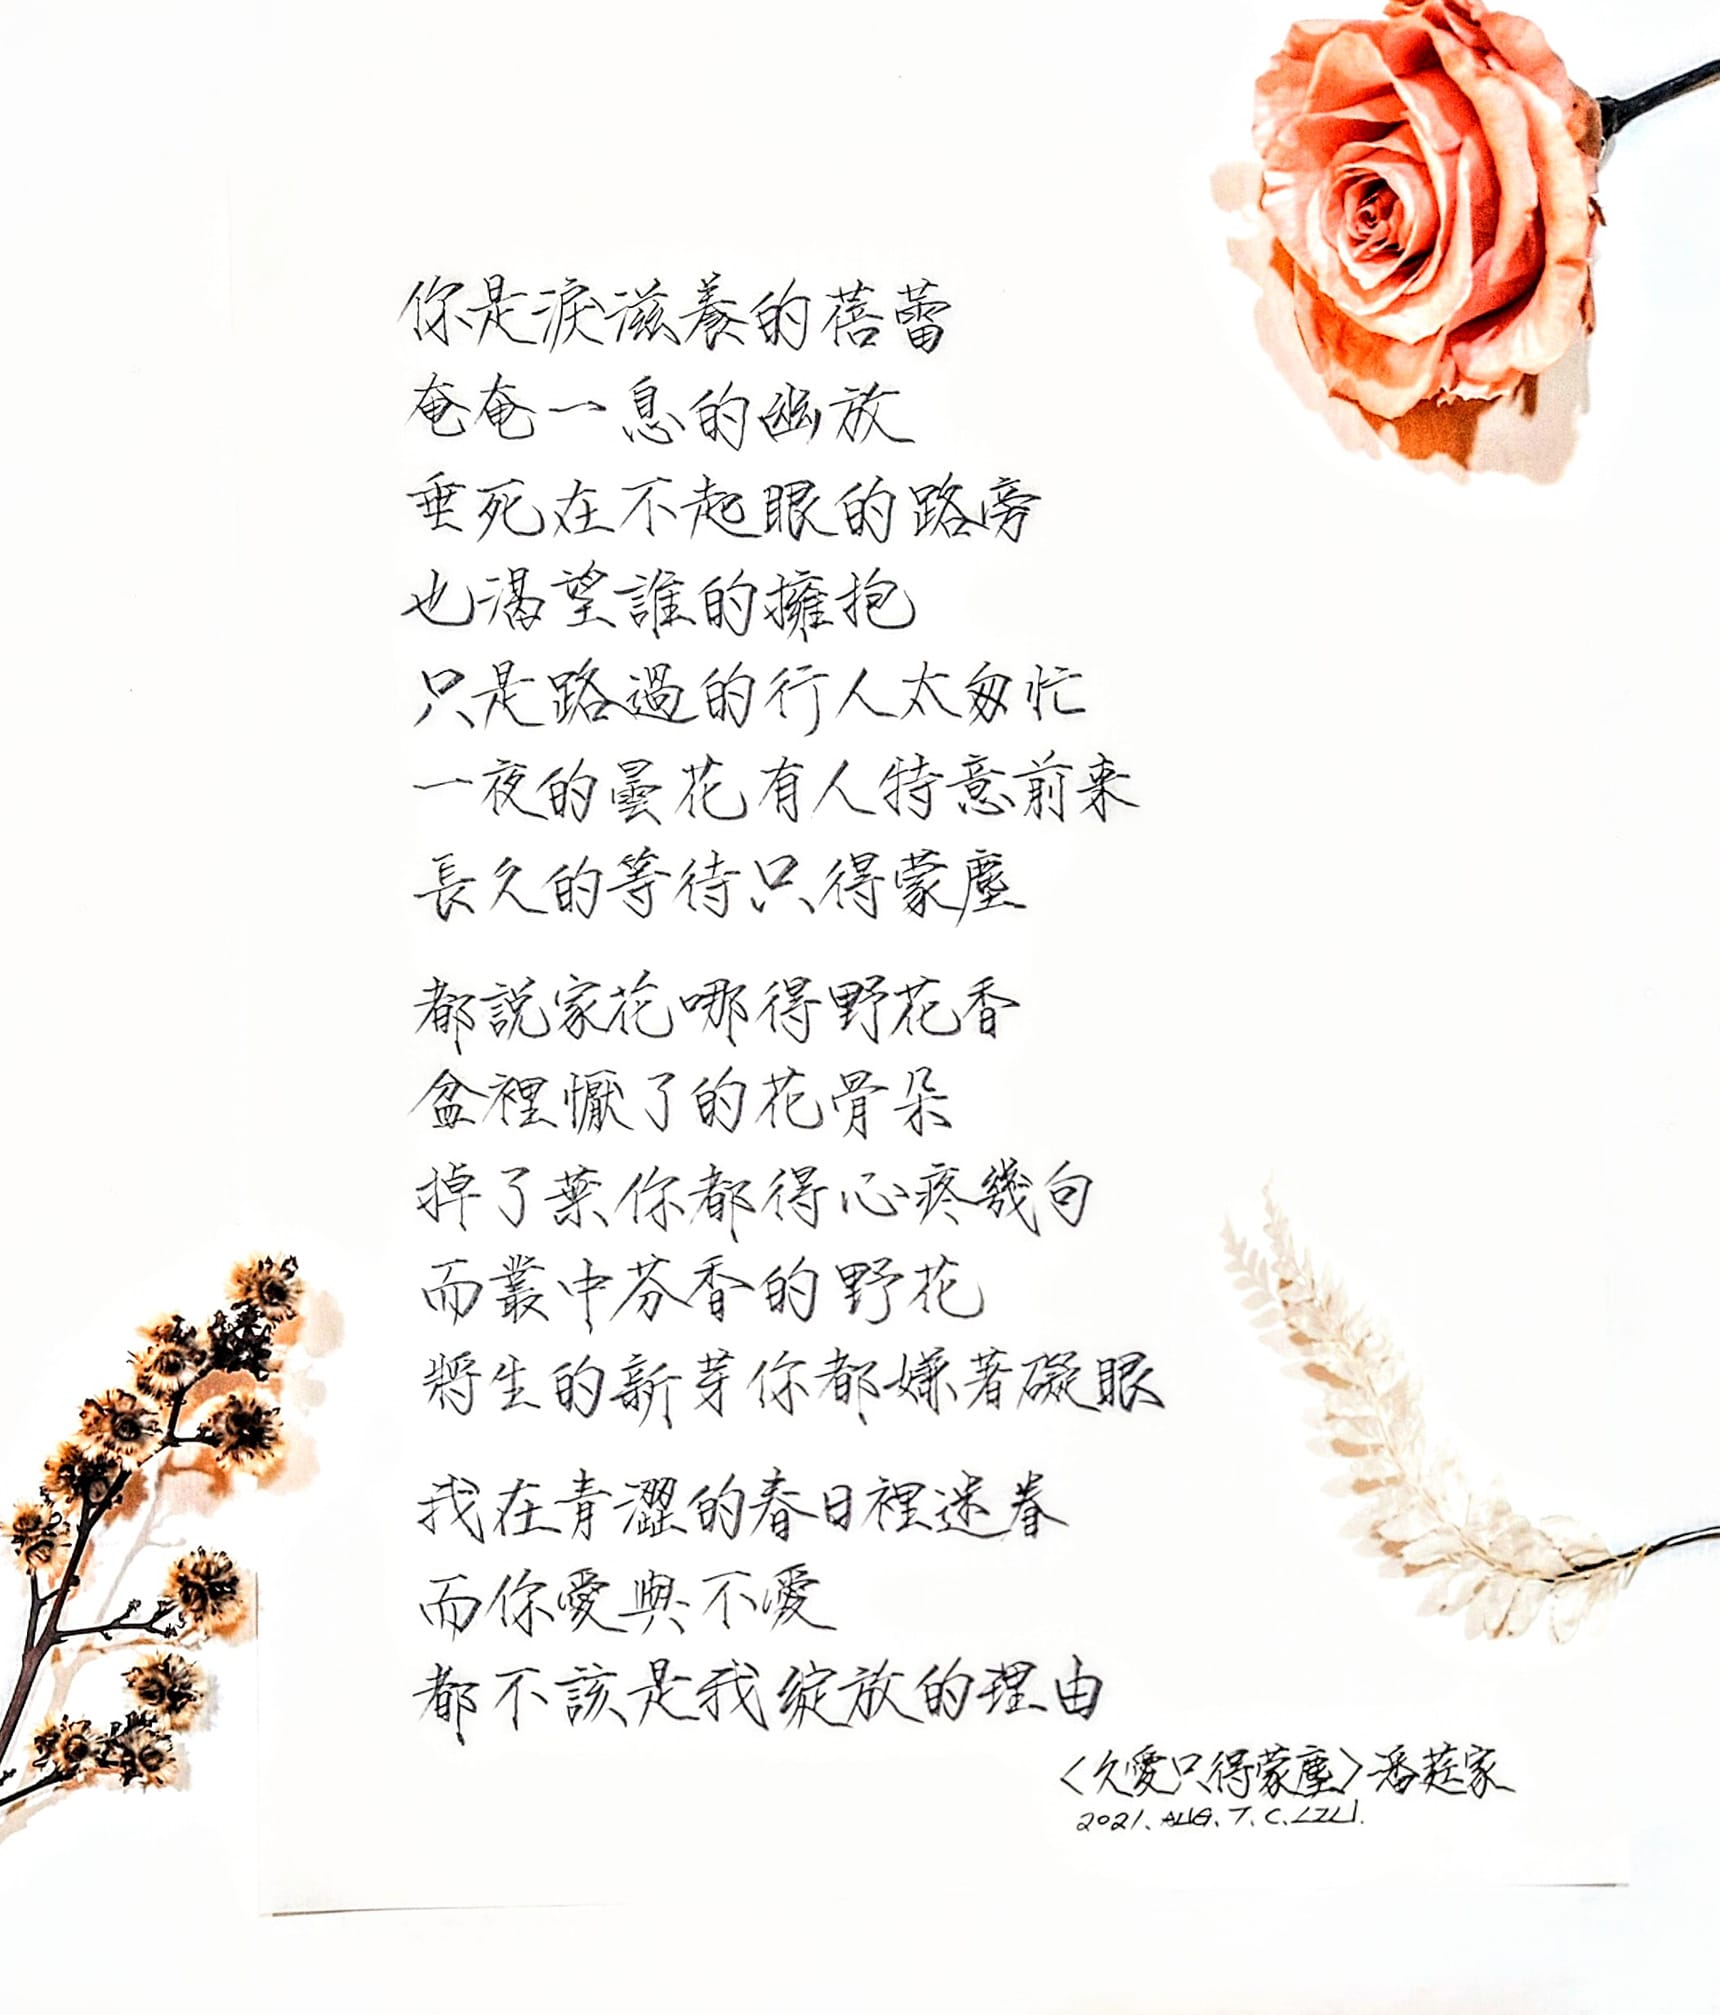 你是淚滋養的蓓蕾
奄奄一息的幽放
垂死在不起眼的路旁
也渴望誰的擁抱
只是路過的行人太匆忙
一夜的曇花有人特意前來
長久的等待只得蒙塵
都說家花哪得野花香
盆裡懨了的花骨朵
掉了葉你都得心疼幾句
而叢中芬香的野花
將生的新芽你都嫌著礙眼
我在青澀的春日裡迷眷
而你愛與不愛
都不該是我綻放的理由
〈久愛只得蒙塵〉潘莛家
2021. AUG. T. C. LILI.